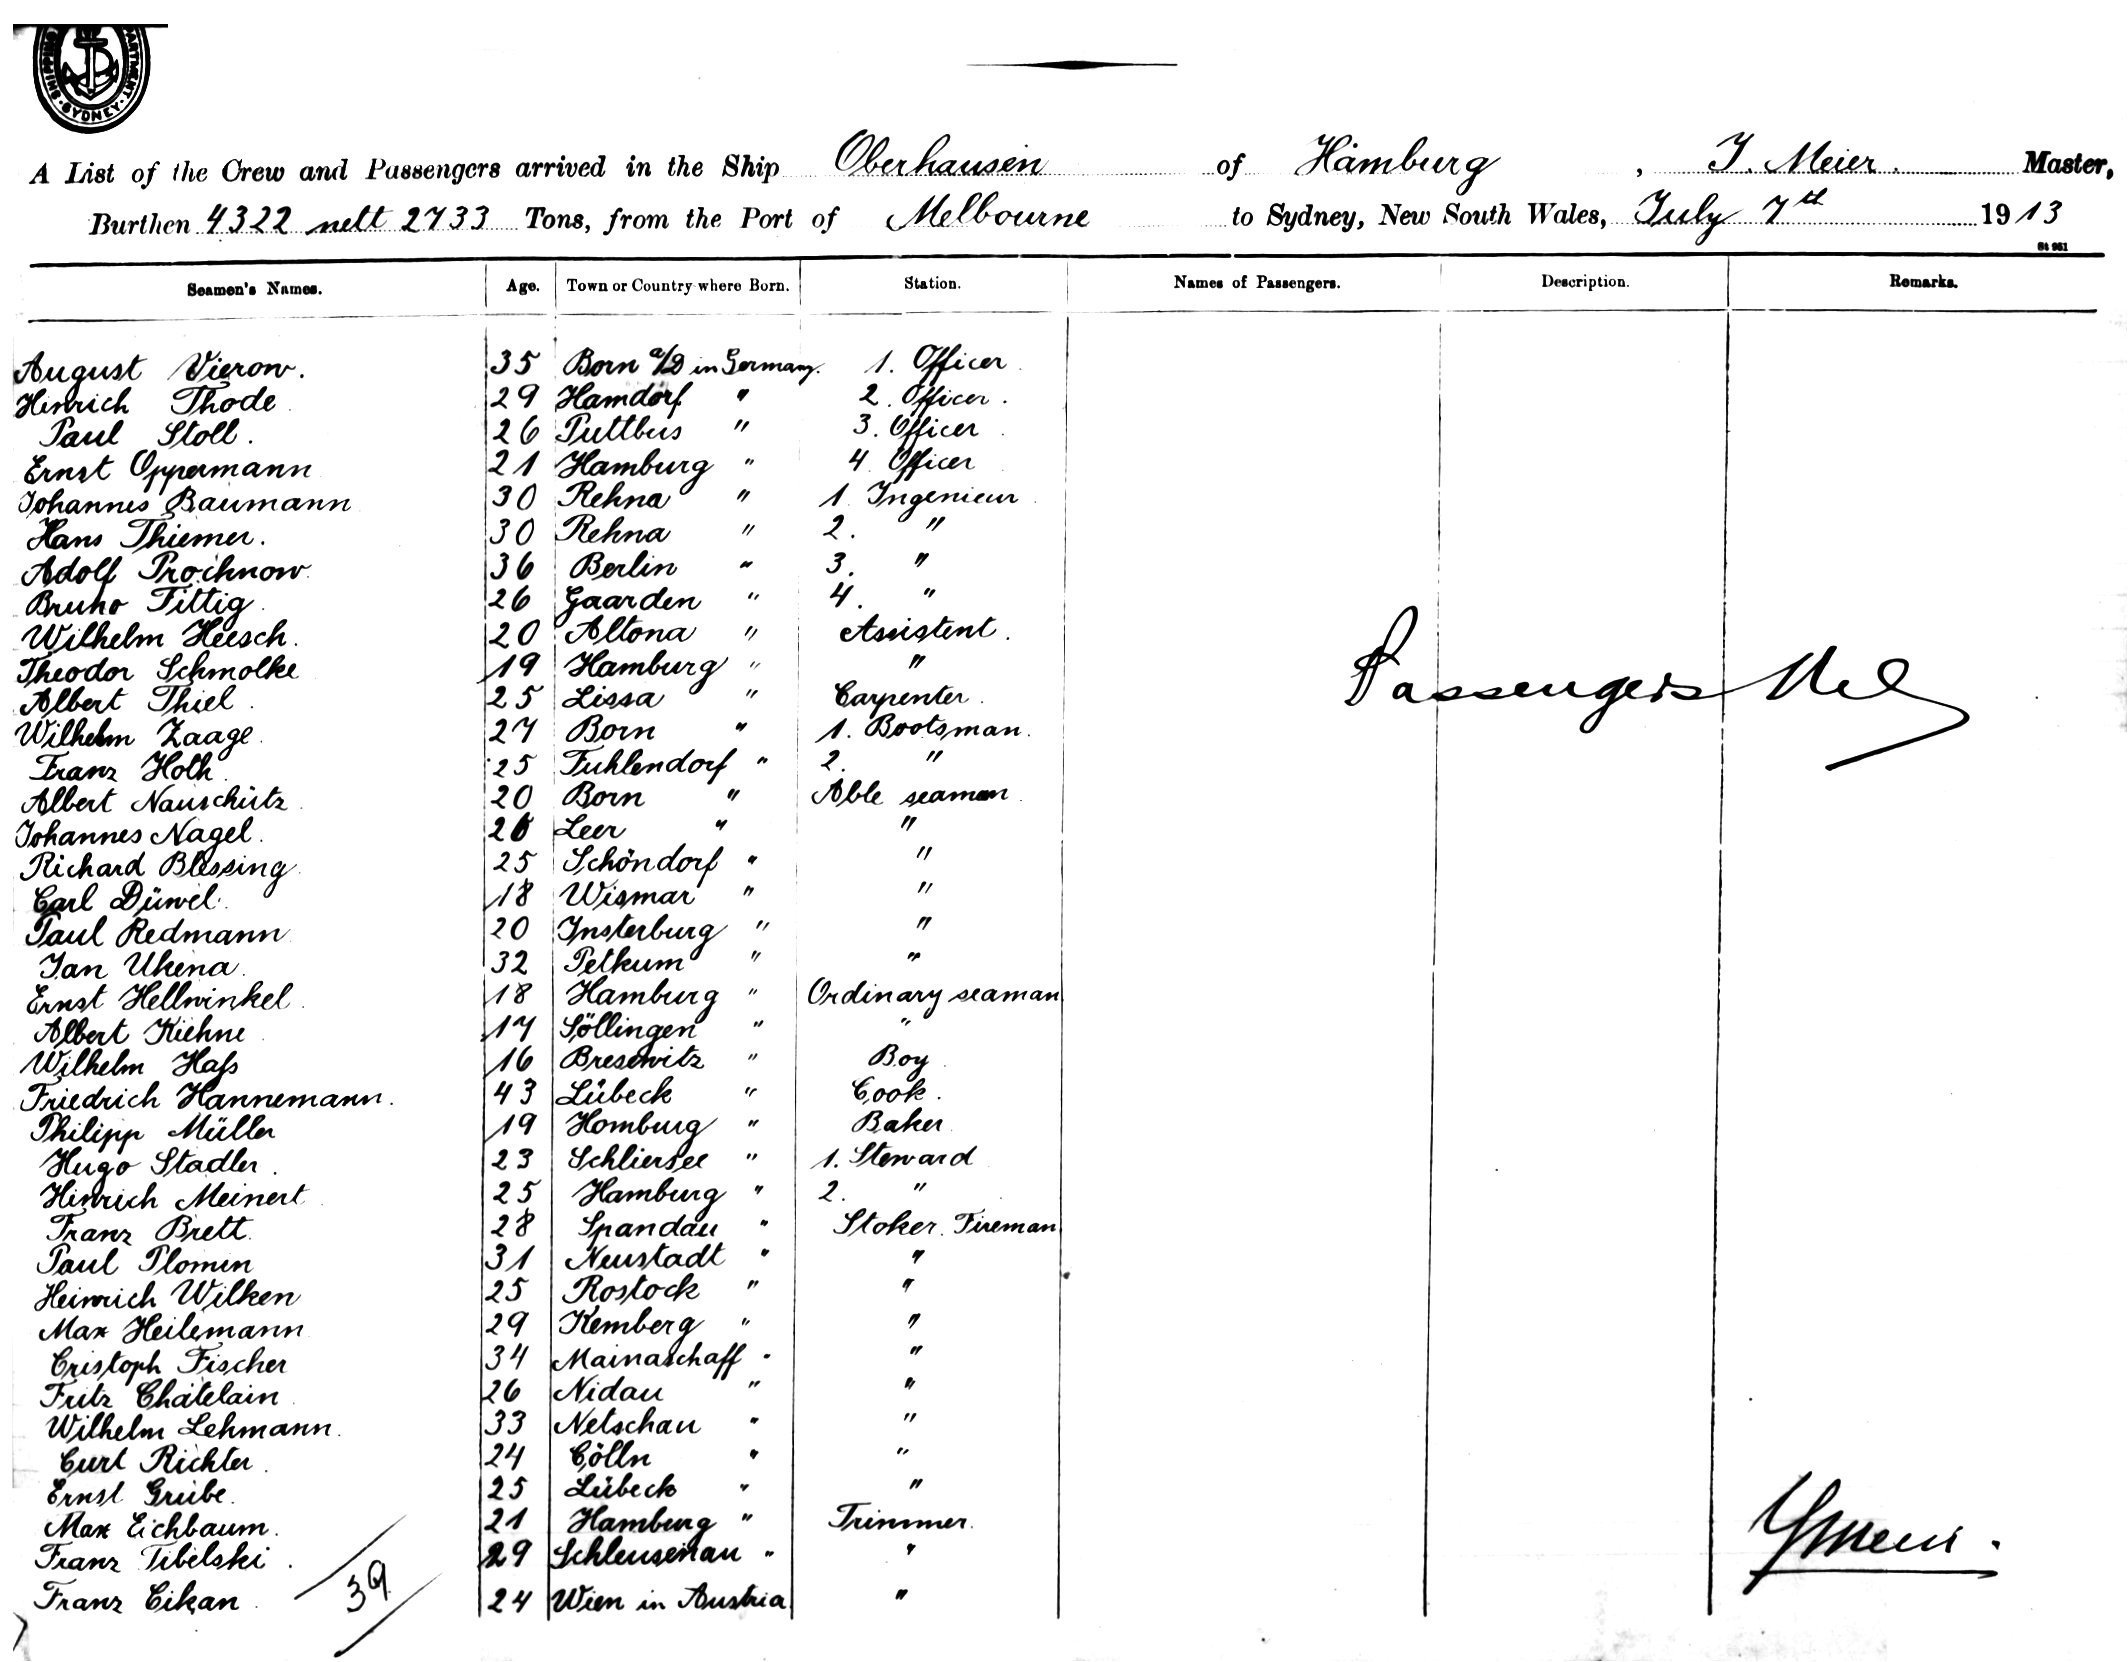 SHIPPING DEPARTMENT. SYDNEY
A List of the Crew and Passengers arrived in the Ship Oberhausen of Hamburg, J. Meier. Master,
Burthen 4322 nett 2733 Tons, from the Port of Melbourne to Sydney, New South Wales, July 7th 1913
St 951
Seamen's Names. Age. Town or Country where Born. Station. Names of Passengers. Description. Remarks.
August Vierow. 35 Born a/D in Germany. 1. Officer
Hinrich Thode 29 Hamdorf " 2. Officer.
Paul Stoll. 26 Puttbus " 3. Officer
Ernst Oppermann 21 Hamburg " 4 Officer
Johannes Baumann 30 Rehna " 1 Ingenieur
Hans Thiemer. 30 Rehna " 2. "
Adolf Prochnow 36 Berlin " 3. "
Bruno Fittig 26 Gaarden " 4. "
Wilhelm Heesch. 20 Altona " Assistent.
Theodor Schmolke 19 Hamburg " "
Albert Thiel. 25 Lissa " Carpenter
Passengers Nil
Wilhelm Zaage 27 Born " 1. Bootsman.
Franz Holh 25 Fuhlendorf " 2. "
Albert Nauschütz 20 Born " Able seaman
Johannes Nagel. Leer " "
Richard Blessing 25 Schöndorf " "
Carl Düwel. 18 Wismar " "
Paul Redmann 20 Insterburg " "
Jan Ukena 32 Petkum " "
Ernst Hellwinkel 18 Hamburg " Ordinary seaman
Albert Kiehne 17 Söllingen " "
Wilhelm Haſs 16 Bresewitz " Boy
Friedrich Hannemann. 43 Lübeck " Cook.
Philipp Müller 19 Homburg " Baker
Hugo Stadler. 23 Schliersee " 1. Steward
Hinrich Meinert 25 Hamburg " 2. "
Franz Brett. 28 Spandau " Stoker. Fireman
Paul Plomin 31 Neustadt " "
Heinrich Wilken 25 Rostock " "
Max Heilemann 29 Kemberg " "
Cristoph Fischer 34 Mainaschaff " "
Fritz Châtelain 26 Nidau " "
Wilhelm Lehmann. 33 Netschau " "
Curt Richter. 24 Cölln " "
Ernst Grube. 25 Lübeck " "
Max Eichbaum. 21 Hamburg " Trimmer.
Franz Tibelski. 29 Schleusenau " "
Franz Cikan. 24 Wien in Austria "
39